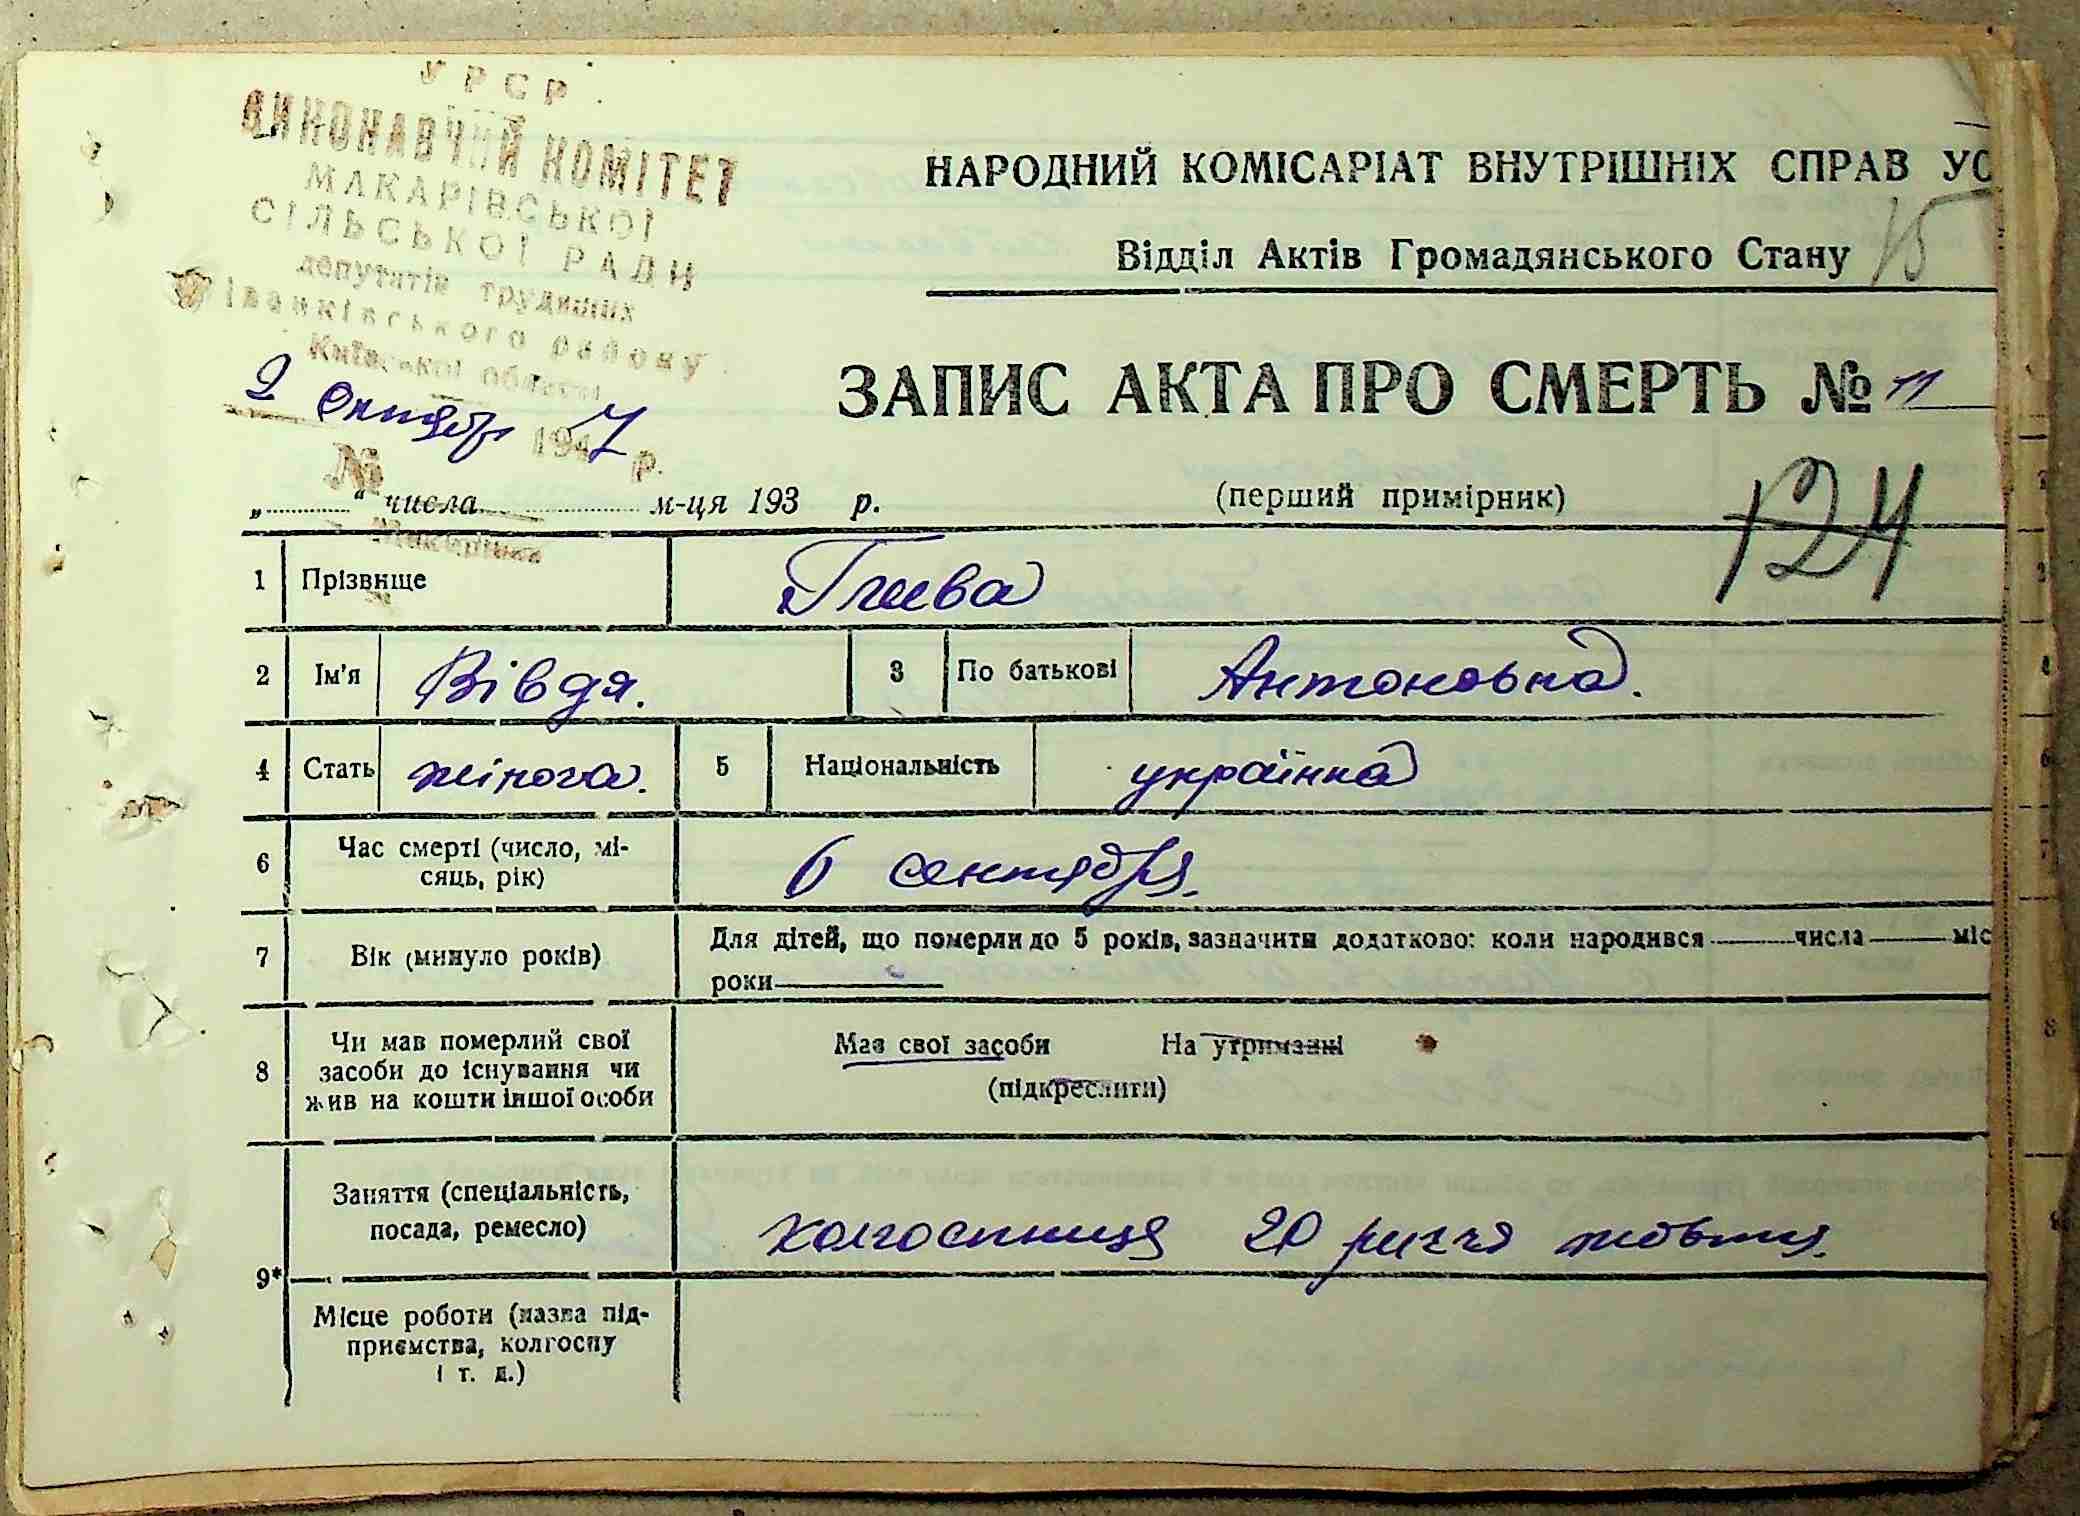 УРСР
ВИКОНАВЧИЙ КОМІТЕТ
МАКАРІВСЬКОЇ
СІЛЬСЬКОЇ РАДИ
депутатів трудящих
Іванківського району
Київської області
НАРОДНИЙ КОМІСАРІАТ ВНУТРІШНІХ СПРАВ УС
Відділ Актів Громадянського Стану 15
ЗАПИС АКТА ПРО СМЕРТЬ № 11
2 октября 1947 р.
№
„ “ числа м-ця 193 р.
(перший примірник)
124
1 Прізвище
2 Ім'я Вівдя. 3 По батькові Антоновна.
4 Стать жіноча. 5 Національність українка
6 Час смерті (число, мі-
сяць, рік) 6 сентября.
7 Вік (минуло років) Для дітей, що померли до 5 років, зазначити додатково: коли народився — числа — міс
роки
8 Чи мав померлий свої
засоби до існування чи
жив на кошти іншої особи
Мав свої засоби На утриманні
(підкреслити)
9* Заняття (спеціальність,
посада, ремесло) колгоспниця 20 річчя жовтня.
Місце роботи (назва під-
приємства, колгоспу
і т. д.)